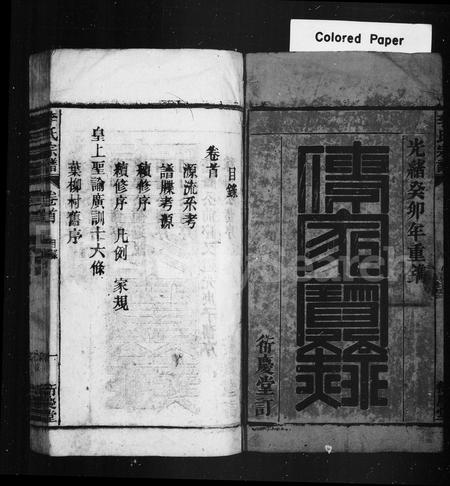 Colored Paper
光緒癸卯年重鐫
傳家寶錄
衍慶堂訂
李氏宗譜
卷首
目錄
目錄
卷首
源流系考
譜牒考源
續修序
續修序 凡例 家規
皇上聖諭廣訓十六條
葉柳村舊序